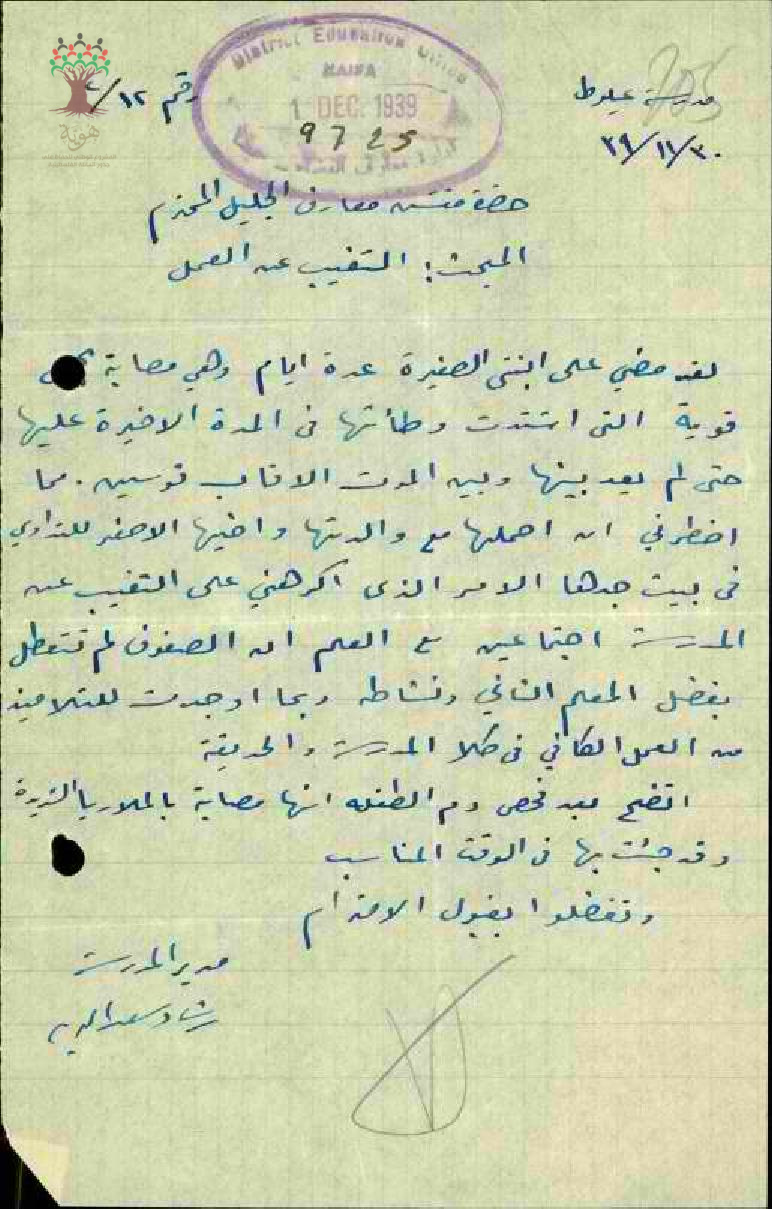 District Education Office
HAIFA
1 DEC. 1939
9725
رقم ١٢/٤
مدرسة عيلوط
٣٩/١١/٣٠
هوية
حضرة مفتش معارف الجليل المحترم
المبحث: التغيب عن العمل
لقد مضي على ابنتي الصغيرة عدة ايام وهي مصابة
قوية التي اشتدت وطأتها في المدة الاخيرة عليها
حتى لم يعد بينها وبين الموت الا قاب قوسين. مما
اضطرني ان احملها مع والدتها واخيها الاصغر للتداوي
في بيت جدها الامر الذي اكرهني على التغيب عن
المدرسة اجتماعين مع العلم ان الصفوف لم تتعطل
بفضل المعلم الثاني ونشاطه وبما اوجدت للتلاميذ
من العمل الكافي في كلا المدرسة والحديقة
اتضح بعد فحص دم الطفله انها مصابة بالملاريا الشديدة
وقد جئت بها في الوقت المناسب
وتفضلوا بقبول الاحترام
مدير المدرسة
رشاد سعد الدين